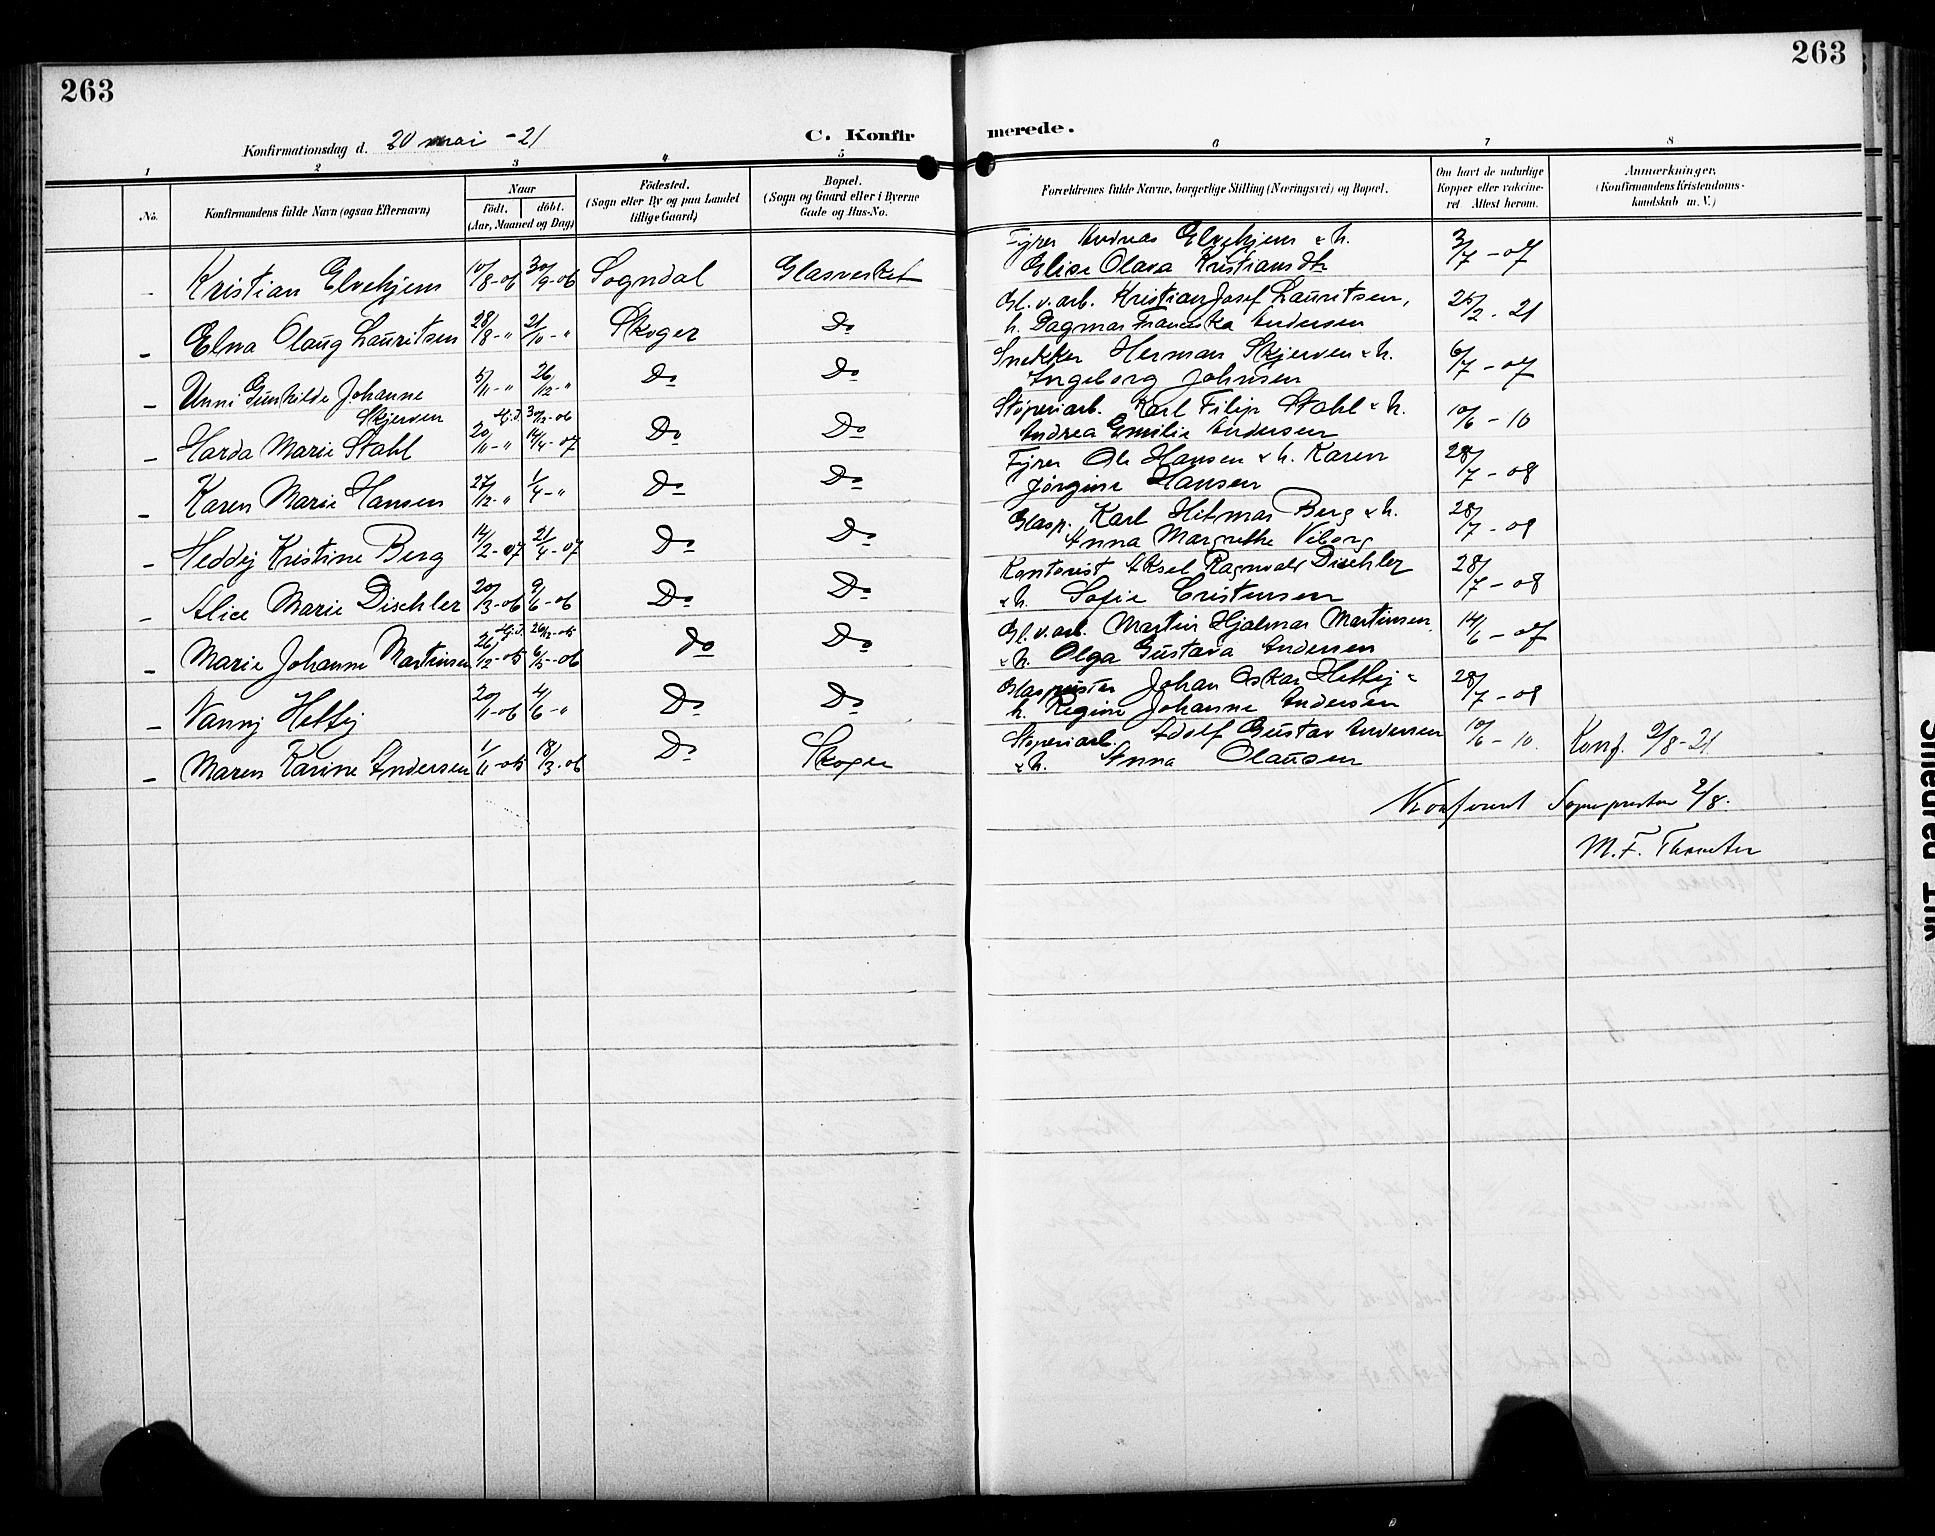 263
263
Konfirmationsdag d. 20 mai - 21
C. Konfirmerede.
1 2 3 4 5 6 7 8
No.
Konfirmandens fulde Navn (ogsaa Efternavn)
Naar
født. døbt.
(Aar, Maaned og Dag)
Fødested.
(Sogn eller By og paa Landet
tillige Gaard)
Bopæl.
(Sogn og Gaard eller i Byerne
Gade og Hus-No.
Forældrenes fulde Navne, borgerlige Stilling (Næringsvei) og Bopæl.
Om havt de naturlige
Kopper eller vakcine-
ret Attest herom.
Anmærkninger.
(Konfirmandens Kristendoms-
kundskab m. V.)
Kristian Elvehjem 10/8-06 30/9-06 Sogndal Glasverket Fyrer Andreas Elvehjem & h. 3/7-07
Elise Olava Kristiansdtr
- Elna Olaug Lauritsen 28/8-" 21/10-" Skoger Do Gl.v.arb. Kristian Josef Lauritsen, 25/2-21
h. Dagmar Franciska Andersen
- Unni Gunhilde Johanne 5/11-" 26/12-" Do Do Snekker Herman Skjerven & h. 6/7-07
Skjerven Ingeborg Johnsen
- Harda Marie Stahl 20/11-" Hj.d. 30/12-06 14/4-07 Do Do Støperiarb. Karl Filip Stahl & h. 10/6-10
Andrea Emilie Andersen
- Karen Marie Hansen 27/12-" 1/4-" Do Do Fyrer Ole Hansen & h. Karen 28/7-08
Jørgine Hansen
- Heddy Kristine Berg 14/2-07 21/4-07 Do Do Glasp. Karl Hilmar Berg & h. 28/7-08
Anna Margrethe Viborg
- Alice Marie Dischler 20/3-06 9/6-06 Do Do Kontorist Aksel Ragnvald Dischler 28/7-08
& h. Sofie Cristensen
- Marie Johanne Martinsen 26/12-05 Hj.d. 26/12-05 6/5-06 do Do Gl.v.arb. Martin Hjalmar Martinsen 14/6-07
& h. Olga Gustava Andersen
- Nanny Hettij 20/11-06 4/6-" Do Do Glaspuster Johan Oskar Hettij & 28/7-08
h. Regine Johanne Andersen
- Maren Karine Andersen 1/11-05 18/3-06 Do Skoger Støperiarb. Adolf Gustav Andersen 10/6-10. Konf. 2/8-21
& h. Anna Olausen
Konferert Sognepresten 2/8.
M. F.